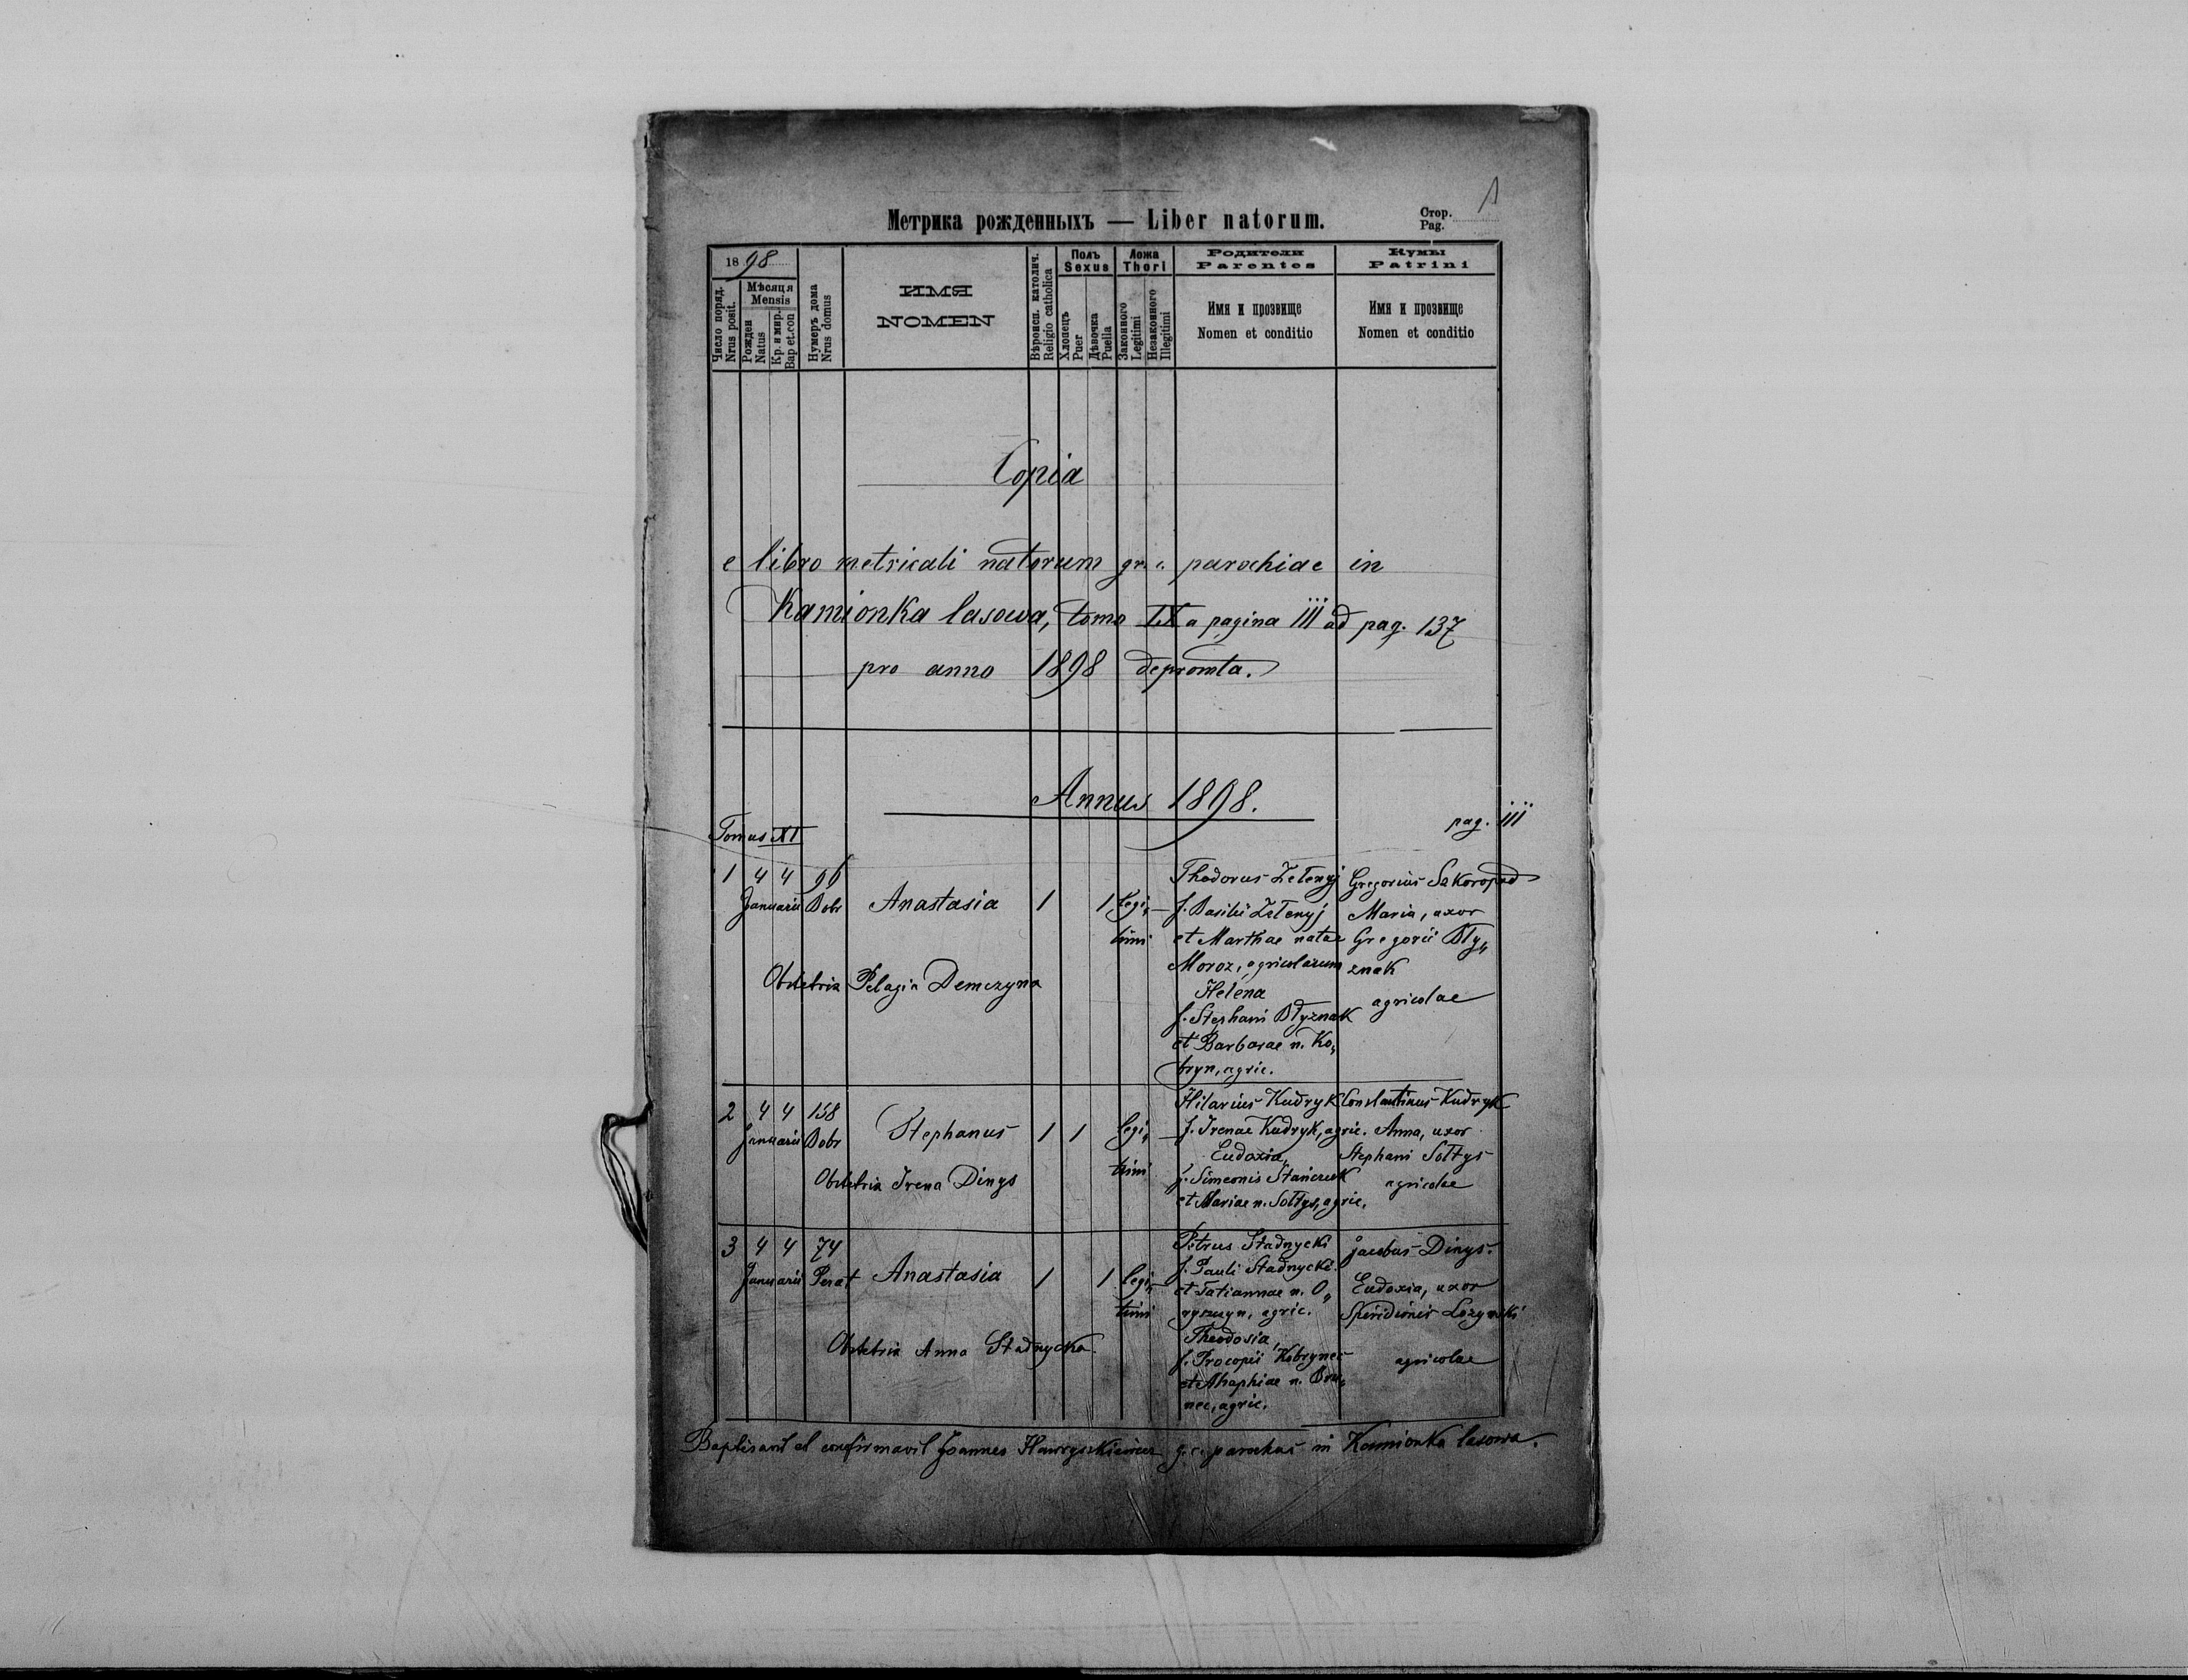 Метрика рожденныхъ — Liber natorum.
Стор.
Pag.
1898
Число поряд.
Nrus posit.
Мѣсяця
Mensis
Рожден
Natus
Кр. и мир.
Bap et.con
Нумеръ дома
Nrus domus
ИМЯ
NOMEN
Вѣроисп. католич.
Religio catholica
Полъ
Sexus
Хлопецъ
Puer
Дѣвочка
Puella
Ложа
Thori
Законного
Legitimi
Незаконного
Illegitimi
Родители
Parentes
Имя и прозвище
Nomen et conditio
Кумы
Patrini
Имя и прозвище
Nomen et conditio
Copia
e libro metricali natorum gr. c. parochiae in
Kamionka lasowa, tomo IX a pagina 111 ad pag. 137
pro anno 1898 depromta.
Annus 1898.
Tomus XI
pag. 111
1 4 4 96
Januarii Dobr
Anastasia 1 1 legi„
timi
Obstetrix Pelagia Demczyna
Thodorus Zełenyj
f. Basilii Zełenyj
et Marthae natae
Moroz, agricolarum
Helena
f. Stephani Błyznak
et Barbarae n. Ko„
bryn, agric.
Gregorius
Maria, uxor
Gregorii Bły„
znak
agricolae
2 4 4 158
Januarii Dobr
Stephanus 1 1 legi„
timi
Obstetrix Irena Dinys
Hilarius Kudryk
f. Irenae Kudryk, agric.
Eudoxia,
f. Simeonis Stańczuk
et Mariae n. Sołtys, agric.
Constantinus Kudryk
Anna, uxor
Stephani Sołtys
agricolae
3 4 4 74
Januarii Perat
Anastasia 1 1 legi„
timi
Obstetrix Anna Stadnycka
Petrus Stadnycki
f. Pauli Stadnycki
et Tatiannae n. O„
agric.
Theodosia,
f. Procopii Kobrynec
et Ahaphiae n.
nec, agric.
Jacobus Dinys.
Eudoxia, uxor
Spiridionis Łozynski
agricolae
Baptisavit et confirmavit Joannes Hawryszkiewicz g. c. parochus in Kamionka lasowa.